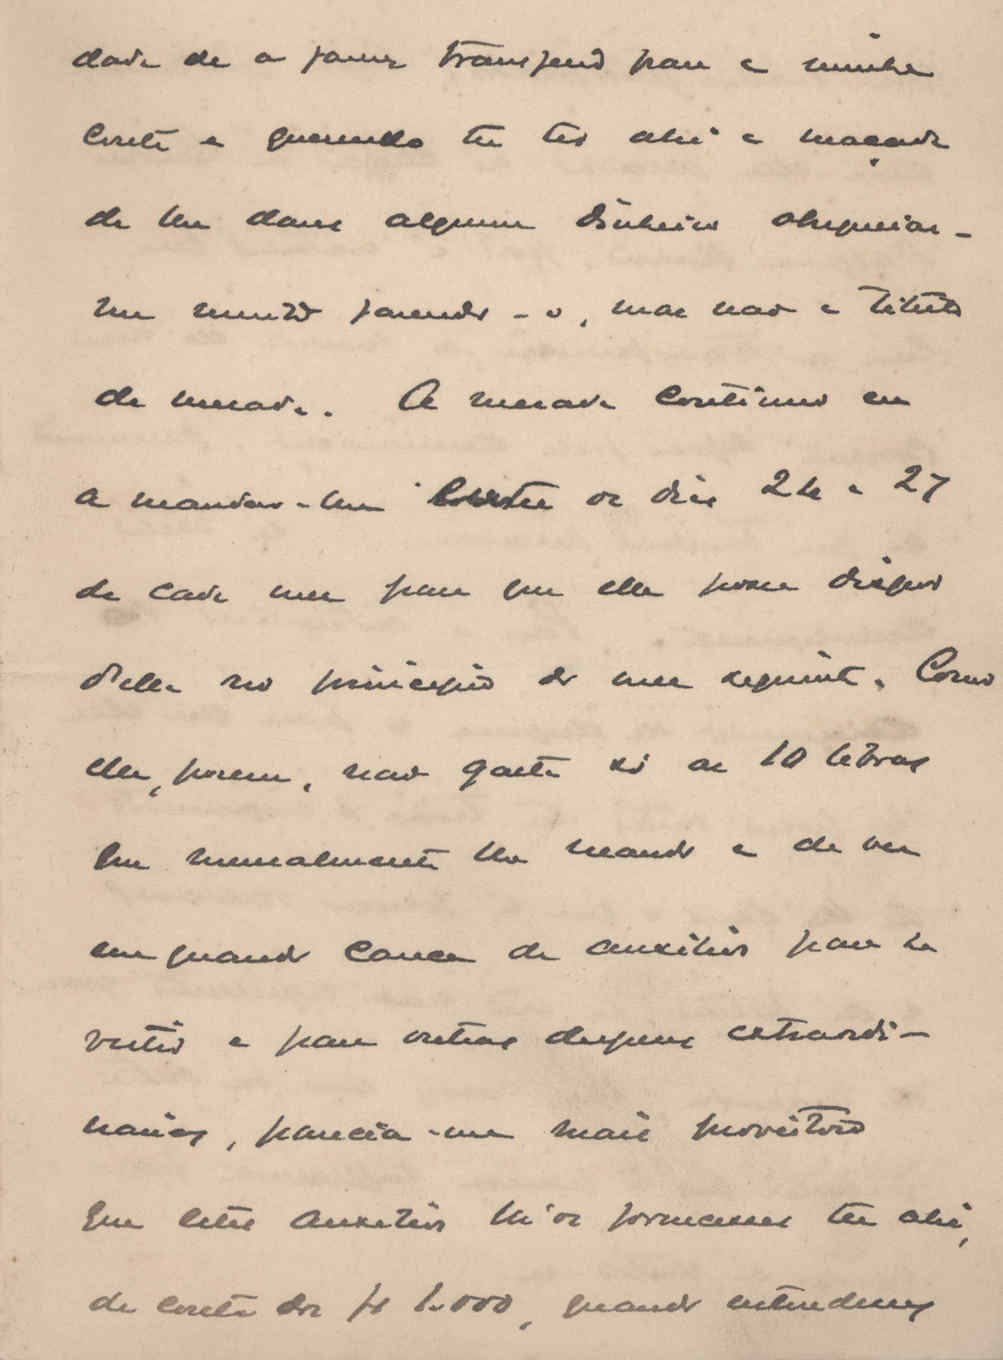 dade de a fazer transferir para a minha
conta e querendo tu ter ahi a maçada
de lhe dares algum dinheiro obsequiar-
me muito fazendo-o, mas não a titulo
de mesada. A mesada continuo eu
a mandar-lhe entre os dias 24 e 27
de cada mez para que elle possa dispor
d'ella no principio do mez seguinte. Como
elle, porem, não gasta só as 10 libras
que mensalmente lhe mando e de vez
em quando carece de auxilios para se
vestir e para outras despezas extraordi-
narias, parecia-me mais proveitoso
que estes auxilios lh'os fornecesses tu ahi,
de conta dos fr 1.000, quando entendesses